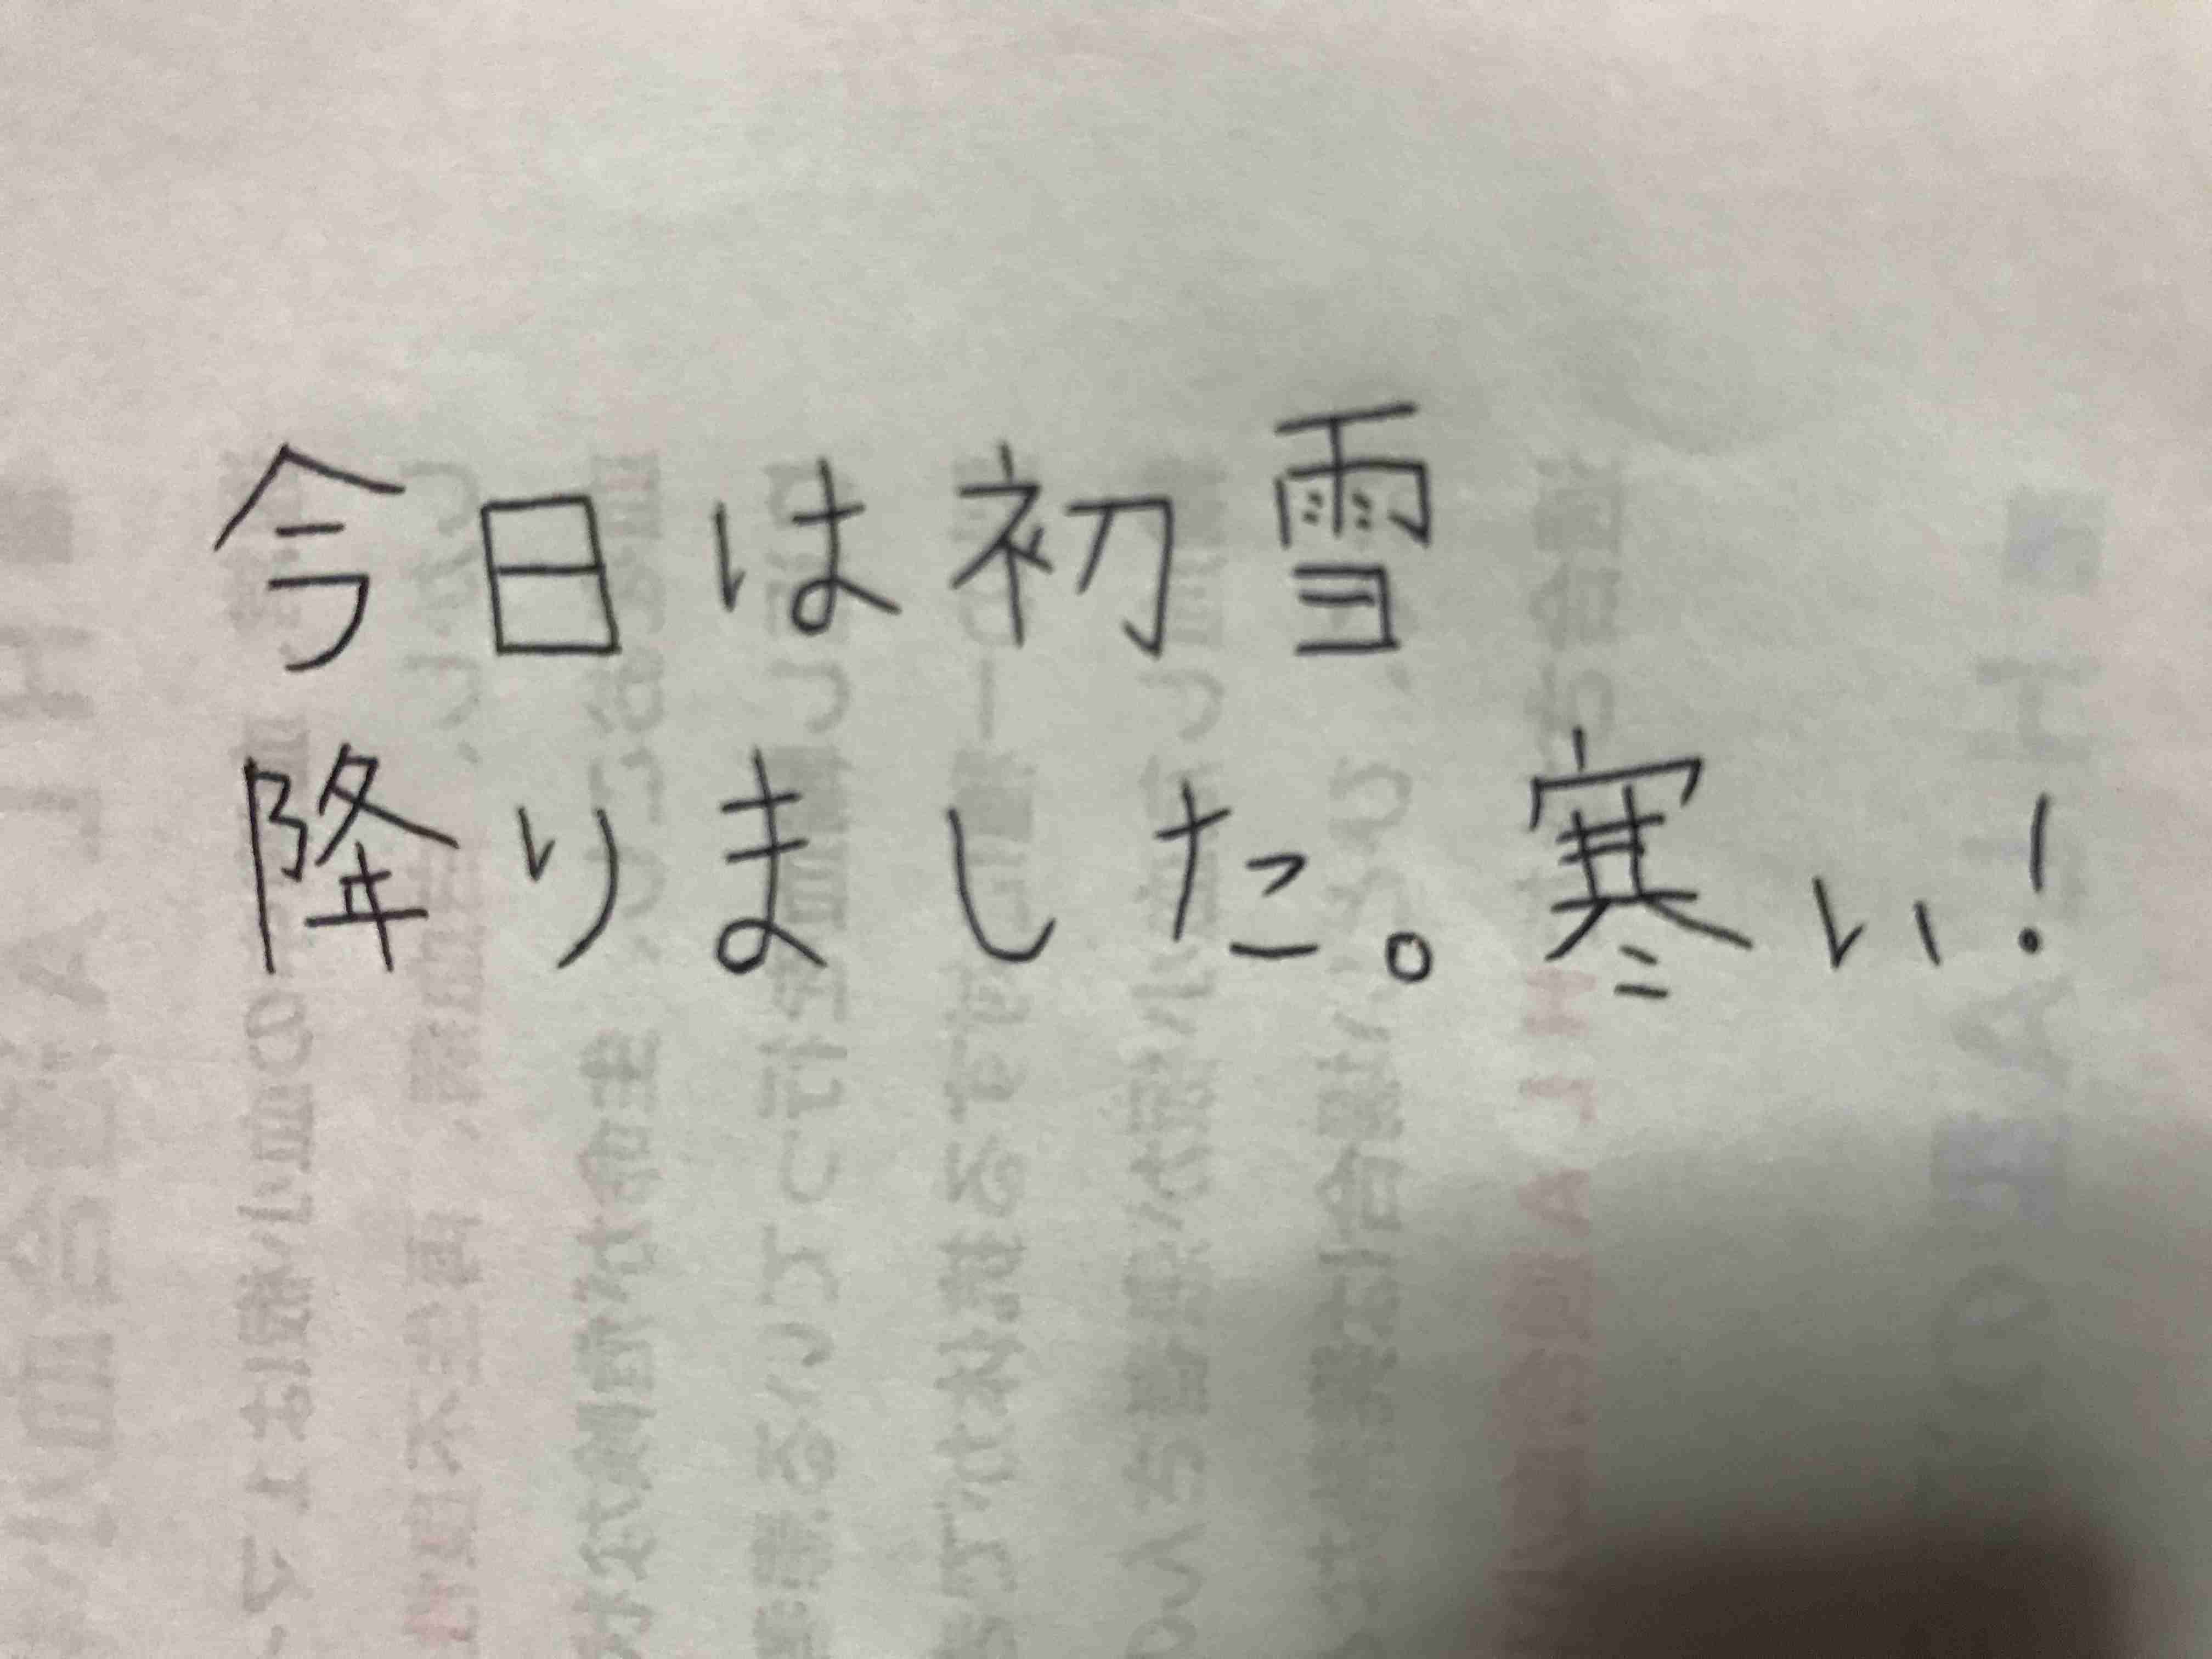 今日は初雪
降りました。寒い!